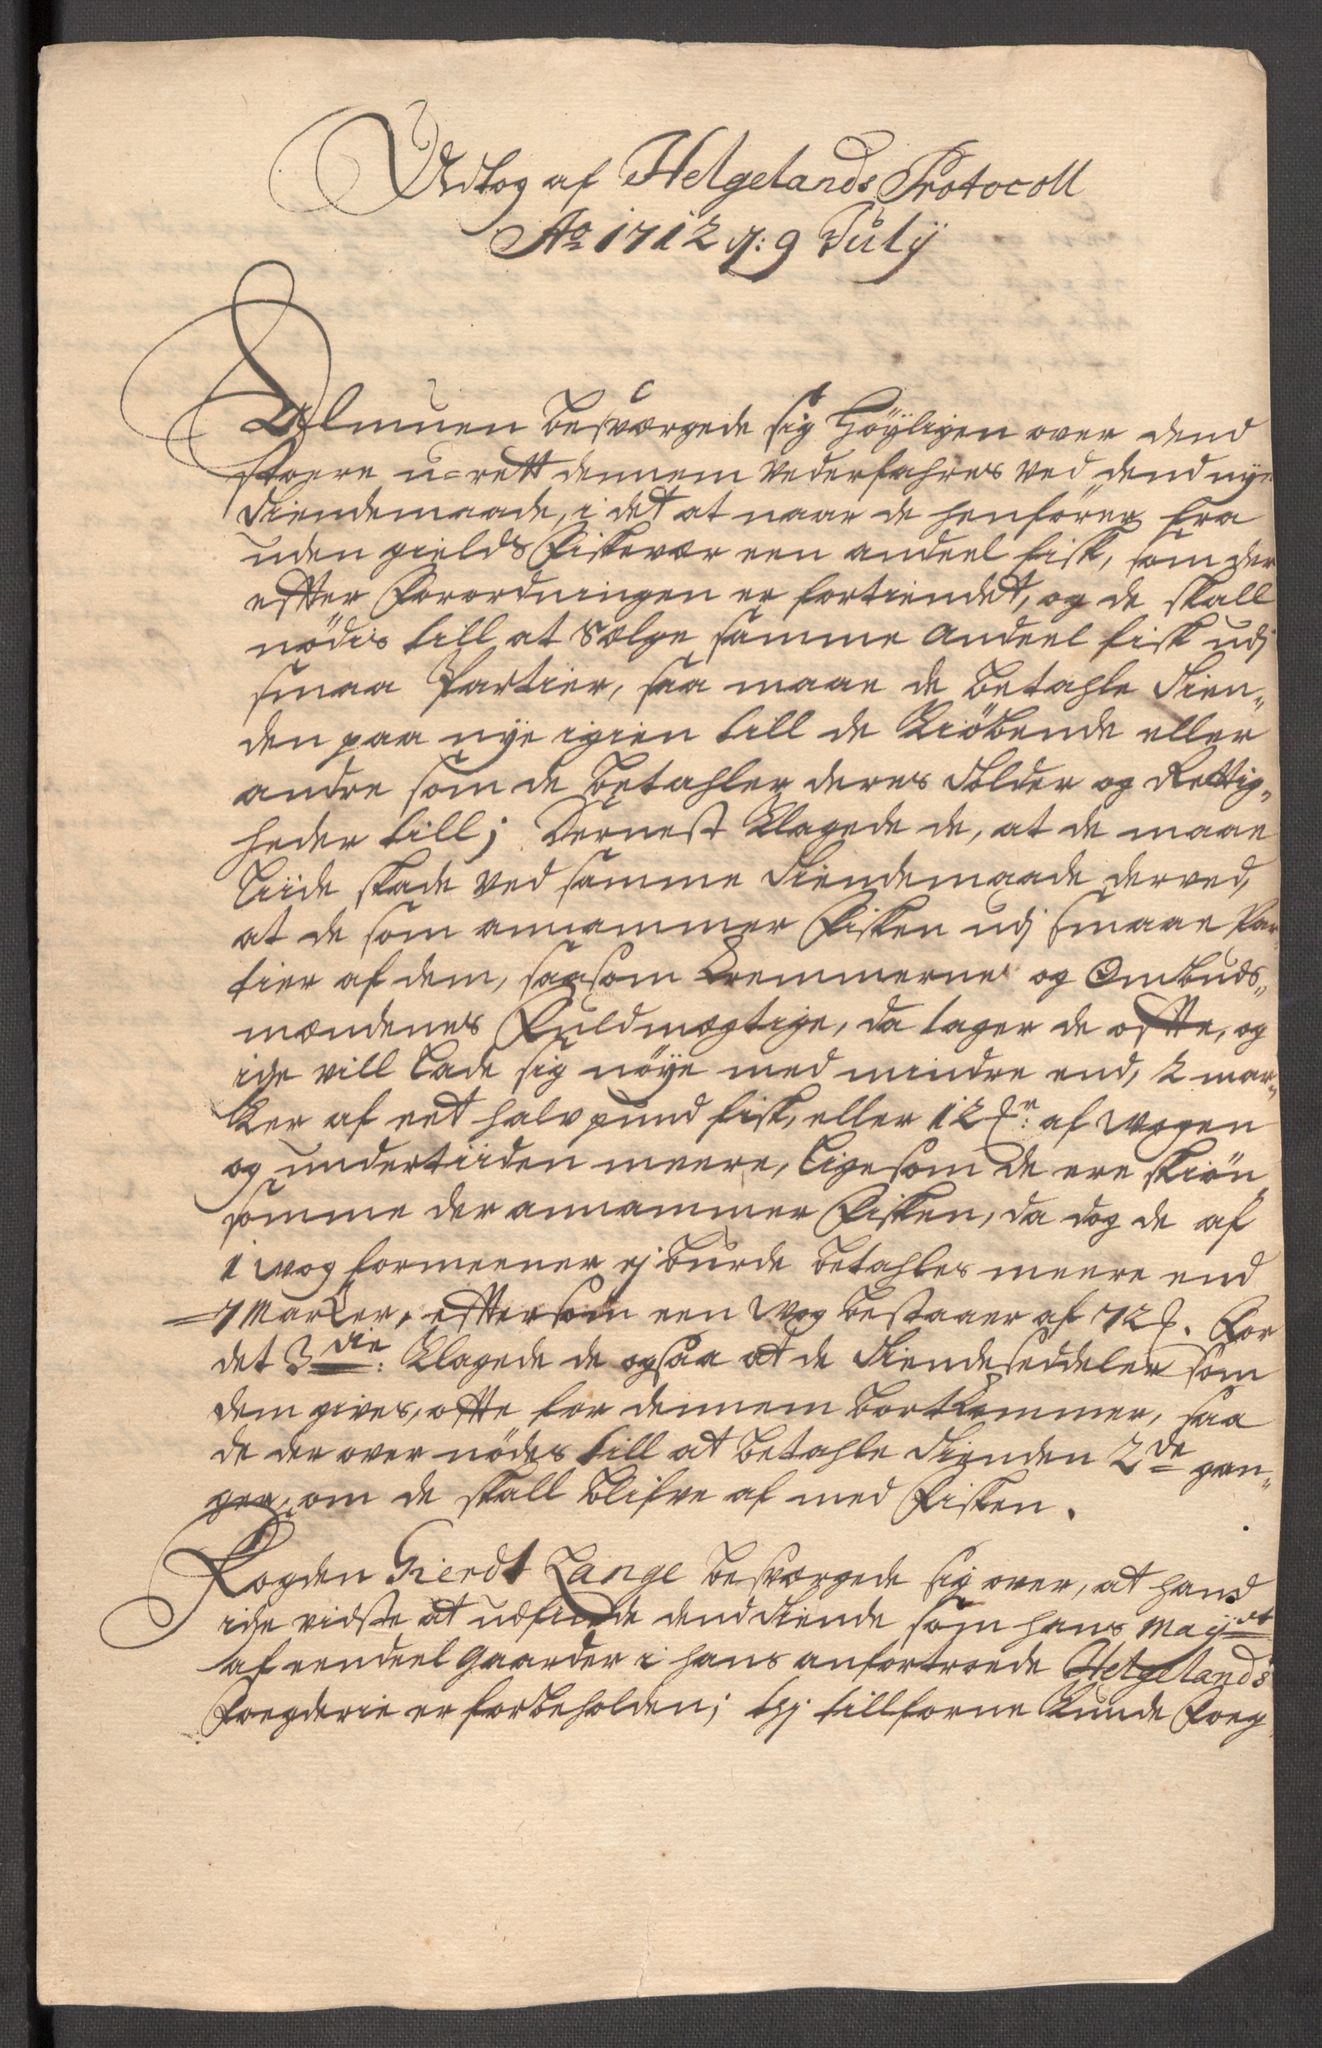 Udtog af Helgelands Protocoll
Ao 1712 d: 9 July
Almuen besværgede sig høyligen over dend
stoere u-rett dennem vederfahres ved dend nye
Tiendemaade, i det at naar de henfører fra
uden gields Fiskevær een andeel fisk, som der
effter Forordningen er fortiendet, og de skall
nødis till at sælge samme Andeel fisk udj
smaa Partier, saa maae de betahle Tien„
den paa nye igien till de Kiøbende eller
andre som de betahler deres Tolder og Rettig„
heder till; Dernest Klagede de, at de maae
liide skade ved samme Tiendemaade derved,
at de som annammer Fisken udj smaae Par„
tier af dem, saasom Kremmerne og Ombuds„
mændenes Fuldmægtige, da tager de offte, og
iche vill lade sig nøye med mindre end, 2 mar„
ker af eet halv pund fisk, eller 12 af Wogen
og undertiiden meere, ligesom de ere skiøn„
somme der annammer Fisken, da dog de af
1 Wog formeener ej burde betahles meere end
7 Marker, effter som een Wog bestaaer af 72. For
det 3die: Klagede de ogsaa at de Tiendeseddeler som
dem gives, offte for dennem bortkommer, saa
de der over nødes till at betahle Tienden 2de gan„
ger, om de skall blifve af med Fisken.
Fogden Gierdt Lange besværgede sig over, at hand
iche vidste at udfinde dend Tiende som hans Mayst
af eendeel Gaarder i hans anfortroede Helgelands
Fogderie er forbeholden; thj tillforne Kunde Fog„